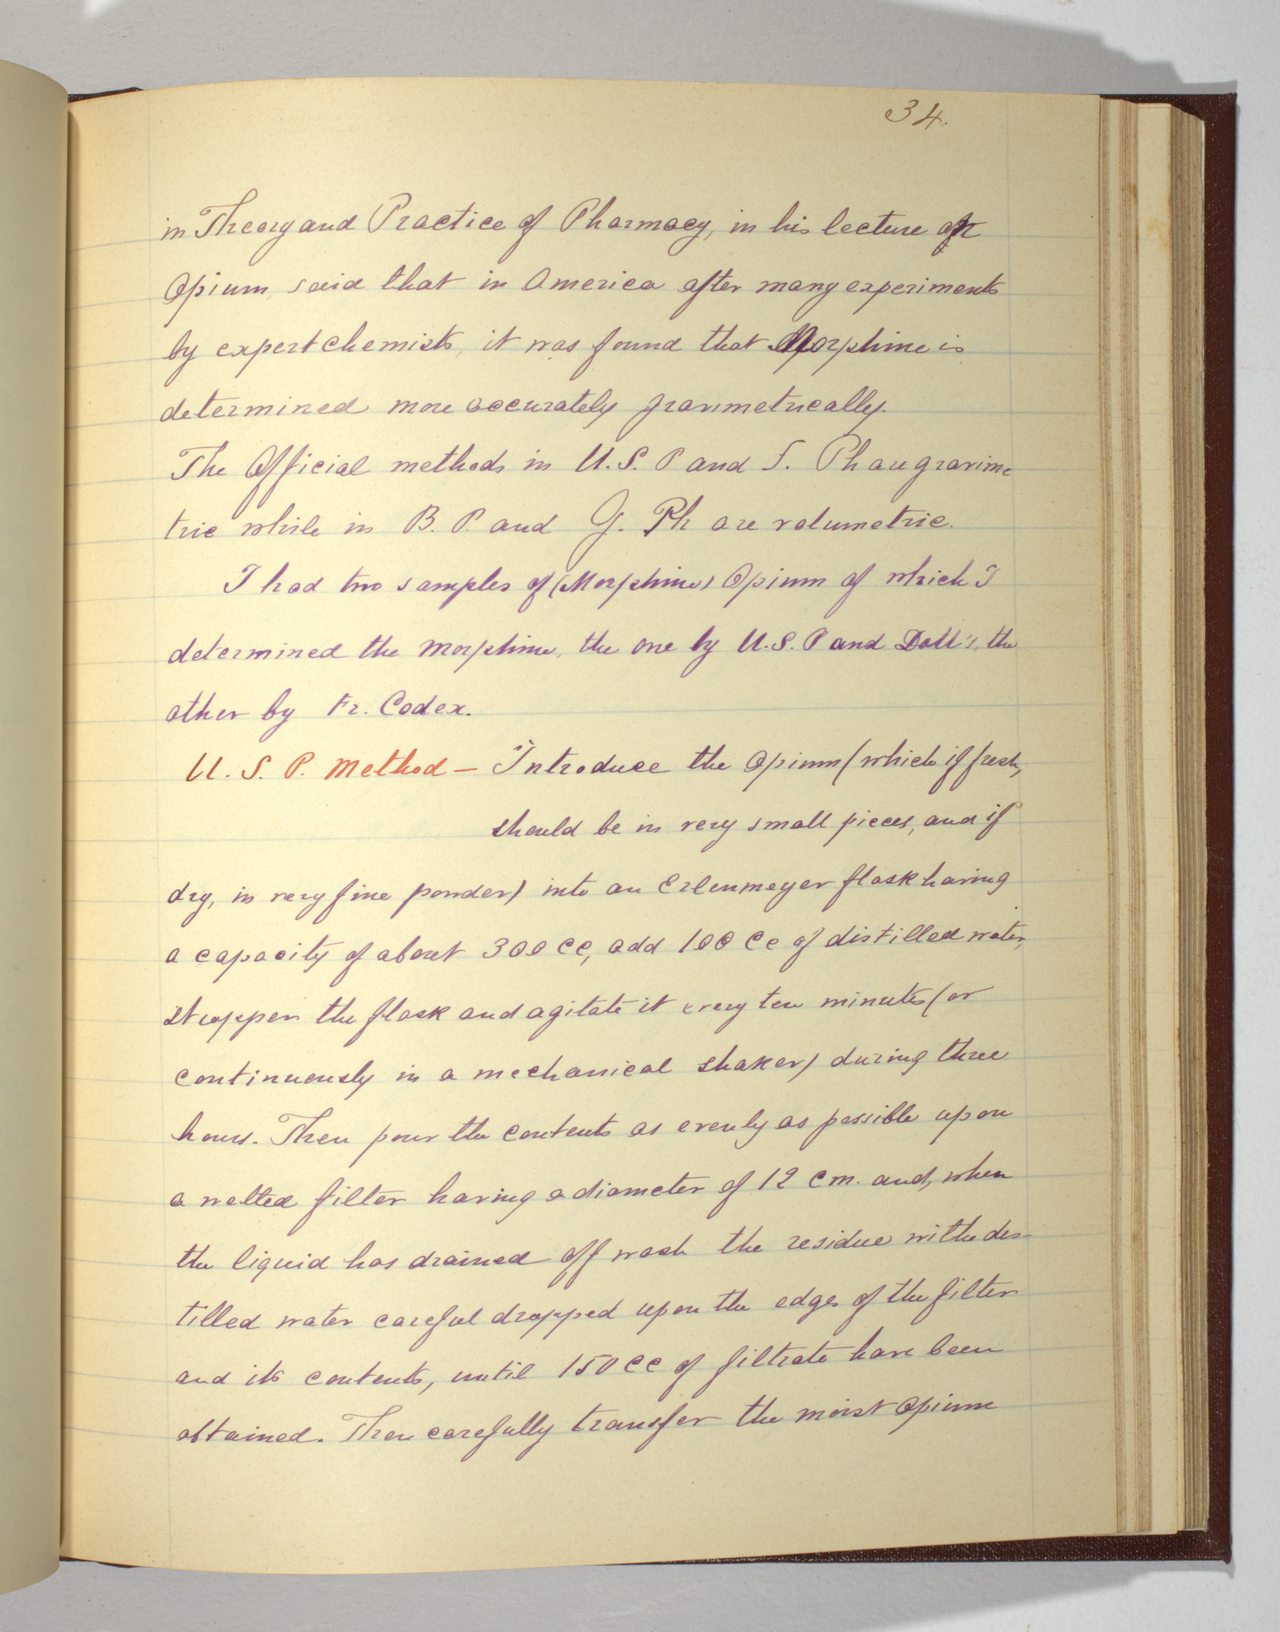 34.
in Theory and Practice of Pharmacy, in his lecture on
Opium, said that in America after many experiments
by expert chemists, it was found that Morphine is
determined more accurately gravimetrically.
The Official methods in U.S. P and F. Ph are gravime
tric while in B. P. and G. Ph are volumetric.
I had two samples of (Morphine) Opium of which I
determined the morphine, the one by U.S. P and Dott's, the
other by Fr. Codex.
U. S. P. Method — Introduce the Opium (which if fresh,
should be in very small pieces, and if
dry, in very fine powder) into an Erlenmeyer flask having
a capacity of about 300 cc, add 100 Cc of distilled water,
stopper the flask and agitate it every ten minutes (or
continuously in a mechanical shaker) during three
hours. Then pour the contents as evenly as possible upon
a wetted filter having a diameter of 12 cm. and, when
the liquid has drained off wash the residue with des-
tilled water careful dropped upon the edges of the filter
and its contents, until 150 cc of filtrate have been
obtained. Then carefully transfer the moist Opium